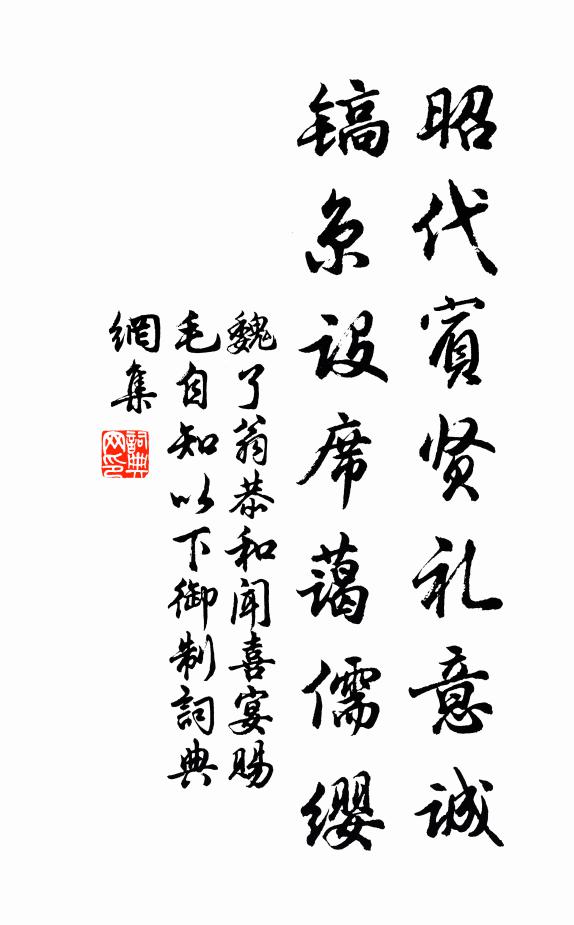 昭代賓贤礼意诚
镐京设席蔼儒缨
魏了翁恭和闻喜宴赐
毛自知以下御制詞典
網集
詞典网印